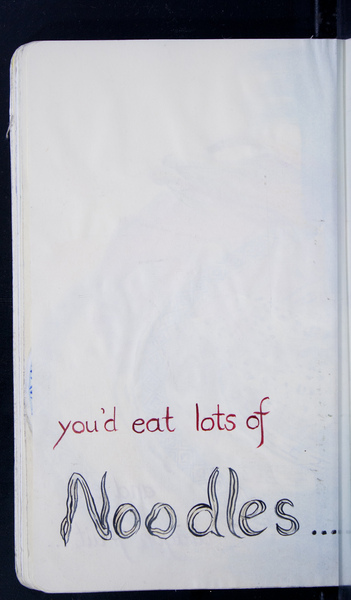 you'd eat lots of
Noodles...